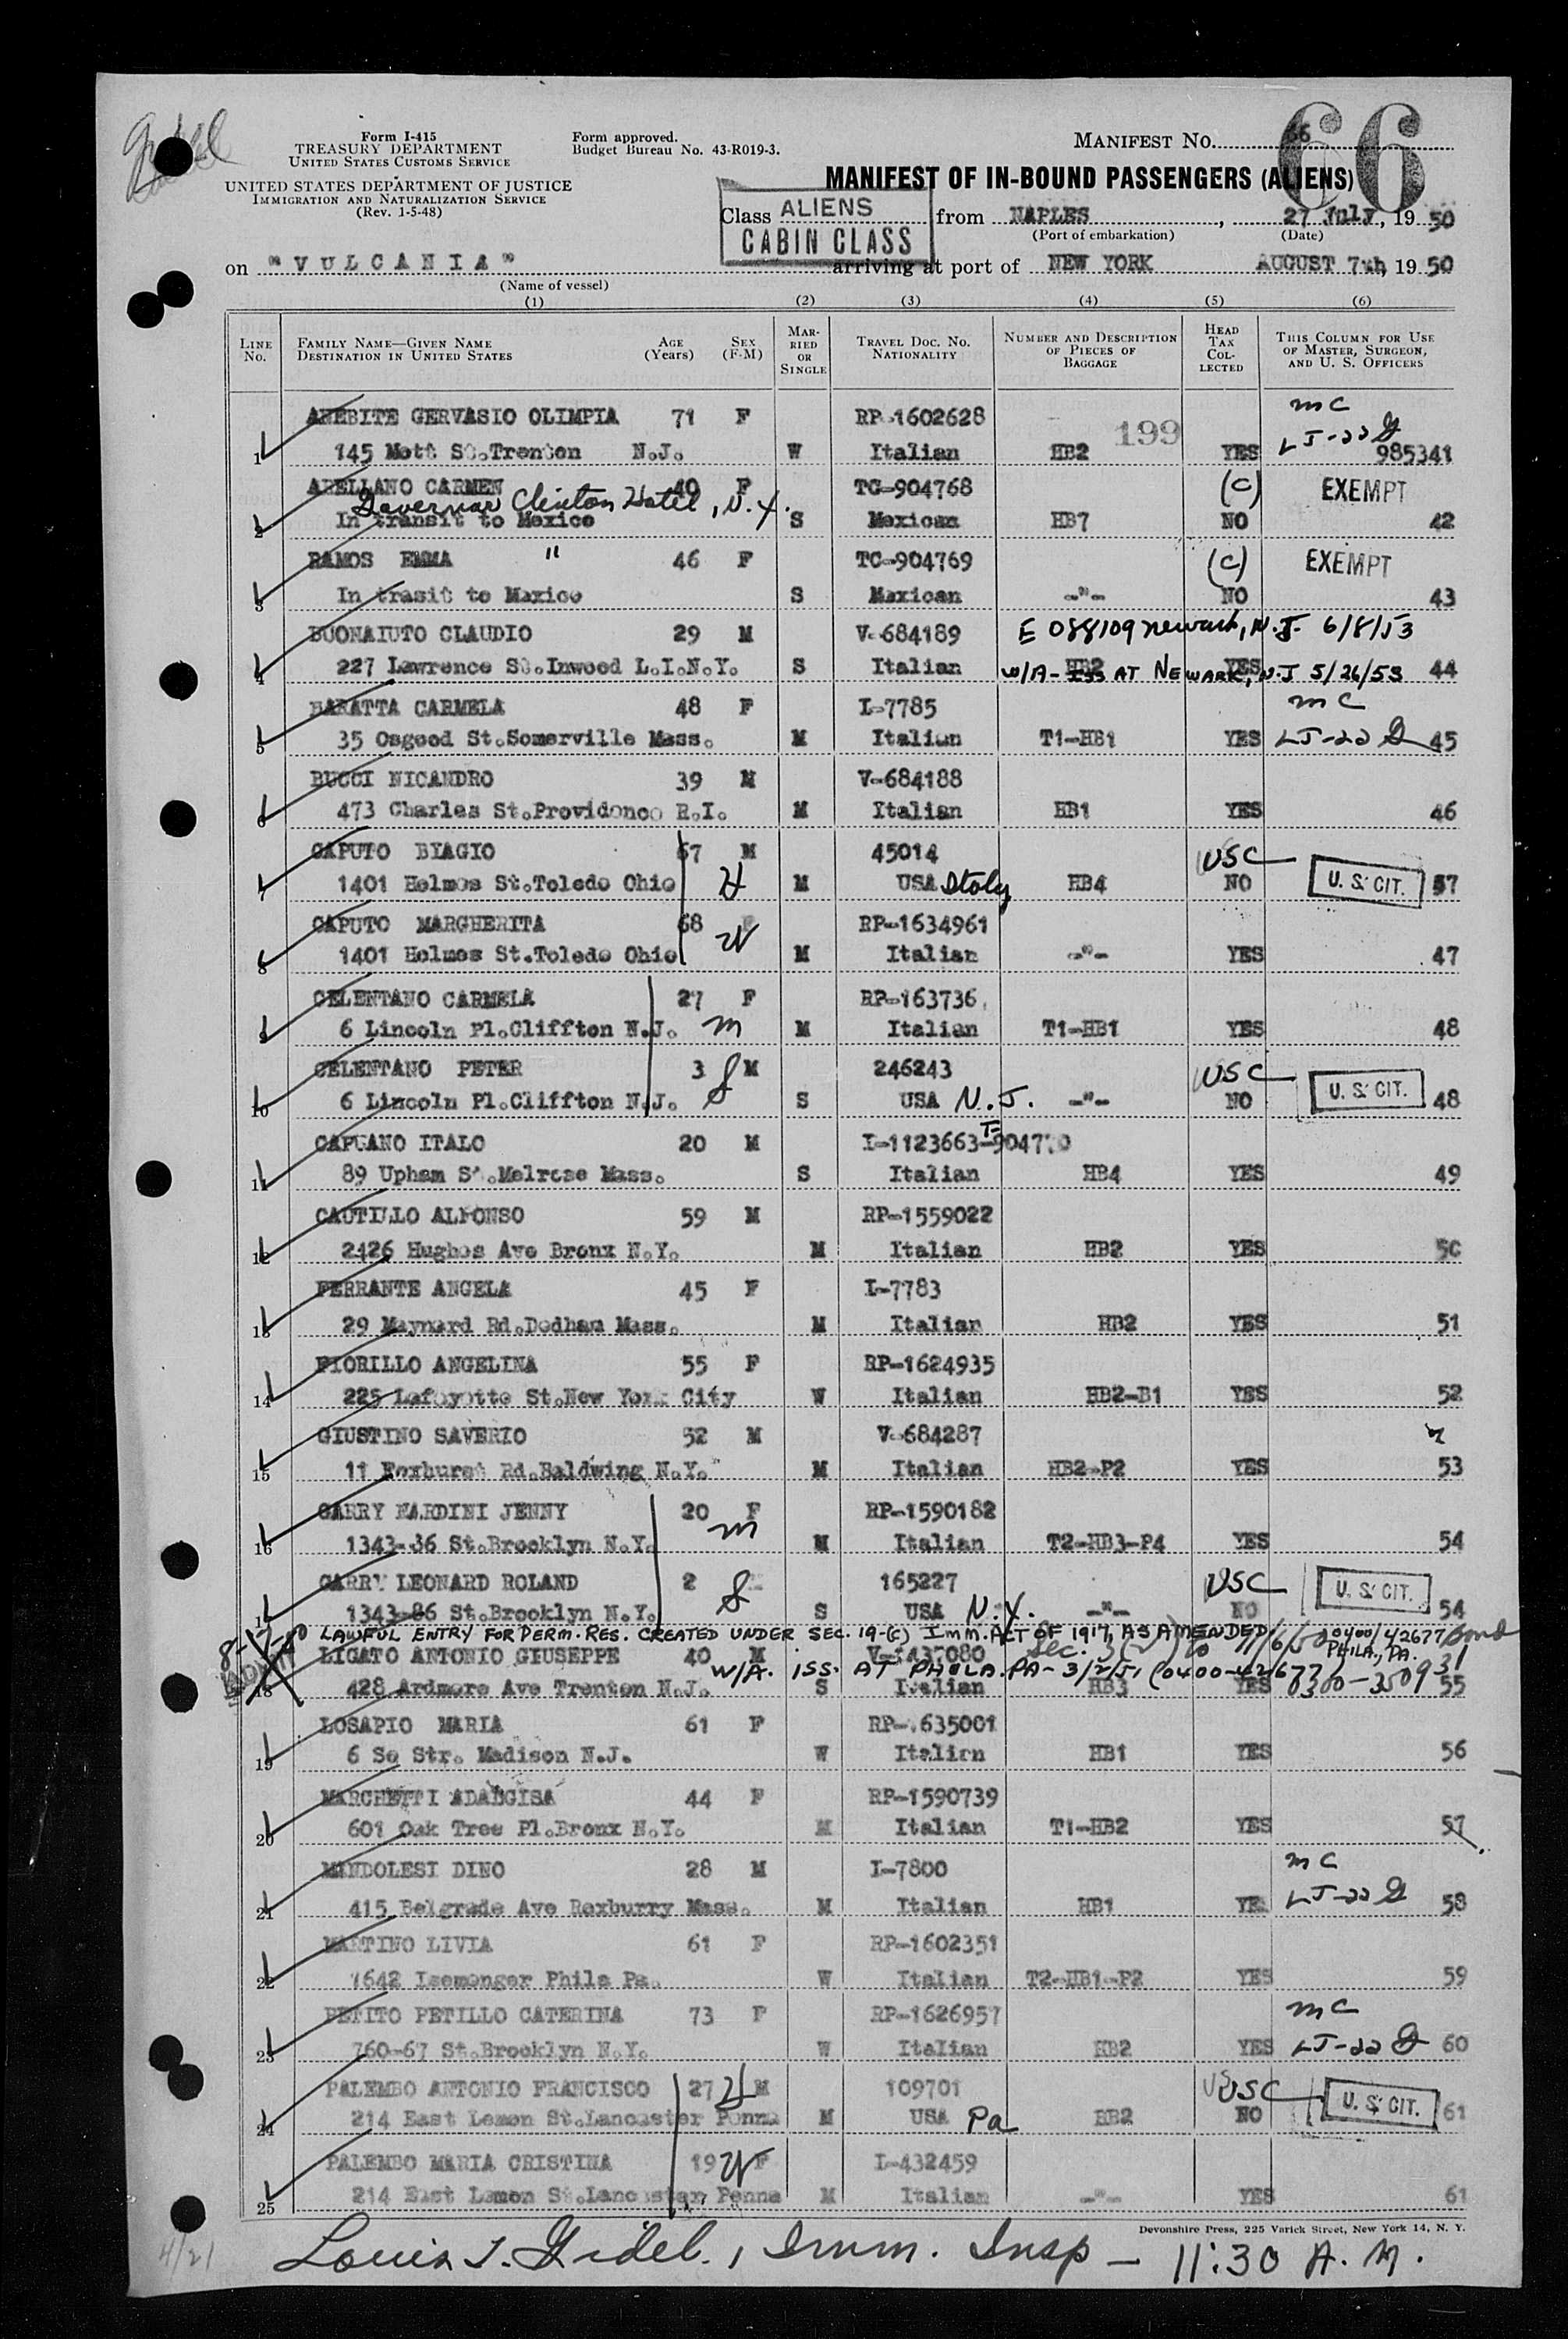 Form I-415
TREASURY DEPARTMENT
UNITED STATES CUSTOMS SERVICE
UNITED STATES DEPARTMENT OF JUSTICE
IMMIGRATION AND NATURALIZATION SERVICE
(Rev. 1-5-48)
Form approved.
Budget Bureau No. 43-R019-3.
MANIFEST No. 66
66
MANIFEST OF IN-BOUND PASSENGERS (ALIENS)
Class ALIENS from NAPLES, 27 July, 1950
CABIN CLASS
(Port of embarkation) (Date)
on "VULCANIA" arriving at port of NEW YORK AUGUST 7th, 1950
(Name of vessel)
(1) (2) (3) (4) (5) (6)
LINE No. FAMILY NAME—GIVEN NAME DESTINATION IN UNITED STATES AGE (Years) SEX (F-M) MARRIED OR SINGLE TRAVEL DOC. No. NATIONALITY NUMBER AND DESCRIPTION OF PIECES OF BAGGAGE HEAD TAX COLLECTED THIS COLUMN FOR USE OF MASTER, SURGEON, AND U. S. OFFICERS
AREBITE GERVASIO OLIMPIA 71 F RP-1602628 199 mc LJ-22
1 145 Mott St.Trenton N.J. W Italian HB2 YES 985341
ARELLANO CARMEN 40 F TC-904768 (C) EXEMPT
Governor Clinton Hotel, N.Y.
2 In transit to Mexico S Mexican HB7 NO 42
RAMOS EMMA " 46 F TC-904769 (C) EXEMPT
3 In trasit to Mexico S Mexican -"- NO 43
BUONAIUTO CLAUDIO 29 M V-684189 E 088109 Newark, N.J. 6/8/53
4 227 Lawrence St.Inwood L.I.N.Y. S Italian HB2 YES 44
W/A- ISS AT NEWARK, N.J 5/26/53
BARATTA CARMELA 48 F I-7785 mc
5 35 Osgood St.Somerville Mass. M Italian T1-HB1 YES LJ-22 45
BUCCI NICANDRO 39 M V-684188
6 473 Charles St.Providence R.I. M Italian HB1 YES 46
CAPUTO BIAGIO 67 M 45014 USC
7 1401 Holmes St.Toledo Ohio H M USA Italy HB4 NO U. S. CIT. 57
CAPUTO MARGHERITA 68 F RP-1634961
8 1401 Holmes St.Toledo Ohio W M Italian -"- YES 47
CELENTANO CARMELA 27 F RP-163736
9 6 Lincoln Pl.Cliffton N.J. m M Italian T1-HB1 YES 48
CELENTANO PETER 3 M 246243 USC
10 6 Lincoln Pl.Cliffton N.J. S S USA N.J. -"- NO U. S. CIT. 48
CAPUANO ITALO 20 M I-1123663-T-904770
11 89 Upham St.Melrose Mass. S Italian HB4 YES 49
CAUTILLO ALFONSO 59 M RP-1559022
12 2426 Hughes Ave Bronx N.Y. M Italian HB2 YES 50
FERRANTE ANGELA 45 F I-7783
13 29 Maynard Rd.Dedham Mass. M Italian HB2 YES 51
FIORILLO ANGELINA 55 F RP-1624935
14 225 Lafayette St.New York City W Italian HB2-B1 YES 52
GIUSTINO SAVERIO 52 M V-684287
15 11 Foxhurst Rd.Baldwing N.Y. M Italian HB2-P2 YES 53
GARRY NARDINI JENNY 20 F RP-1590182
16 1343-36 St.Brooklyn N.Y. m M Italian T2-HB3-P4 YES 54
GARRY LEONARD ROLAND 2 165227 USC U. S. CIT.
17 1343-86 St.Brooklyn N.Y. S S USA N.Y. -"- NO 54
LAWFUL ENTRY FOR PERM. RES. CREATED UNDER SEC. 19-(C) IMM. ACT OF 1917, AS AMENDED 0400/42677 PHILA., PA.
LIGATO ANTONIO GIUSEPPE 40 M
W/A. ISS. AT PHILA. PA- 3/2/51 (0400-42677)
18 428 Ardmore Ave Trenton N.J. S Italian HB3 YES 55
LOSAPIO MARIA 61 F RP-1635001
19 6 So Str. Madison N.J. W Italian HB1 YES 56
MARCHETTI ADALGISA 44 F RP-1590739
20 601 Oak Tree Pl.Bronx N.Y. M Italian T1-HB2 YES 57
MINDOLESI DINO 28 M I-7800 mc
21 415 Belgrade Ave Roxburry Mass. M Italian HB1 YES LJ-22 58
MARTINO LIVIA 61 F RP-1602351
22 1642 Isemonger Phila Pa. W Italian T2-HB1-P2 YES 59
PETITO PETILLO CATERINA 73 F RP-1626957 mc
23 760-67 St.Brooklyn N.Y. W Italian HB2 YES LJ-22 60
PALEMBO ANTONIO FRANCISCO 27 H M 109701 USC
24 214 East Lemon St.Lancaster Penna M USA Pa HB2 NO U. S. CIT. 61
PALEMBO MARIA CRISTINA 19 W F I-432459
25 214 East Lemon St.Lancaster Penna M Italian -"- YES 61
Devonshire Press, 225 Varick Street, New York 14, N. Y.
4/21
Louis J. Gidel., Imm. Insp — 11:30 A.M.